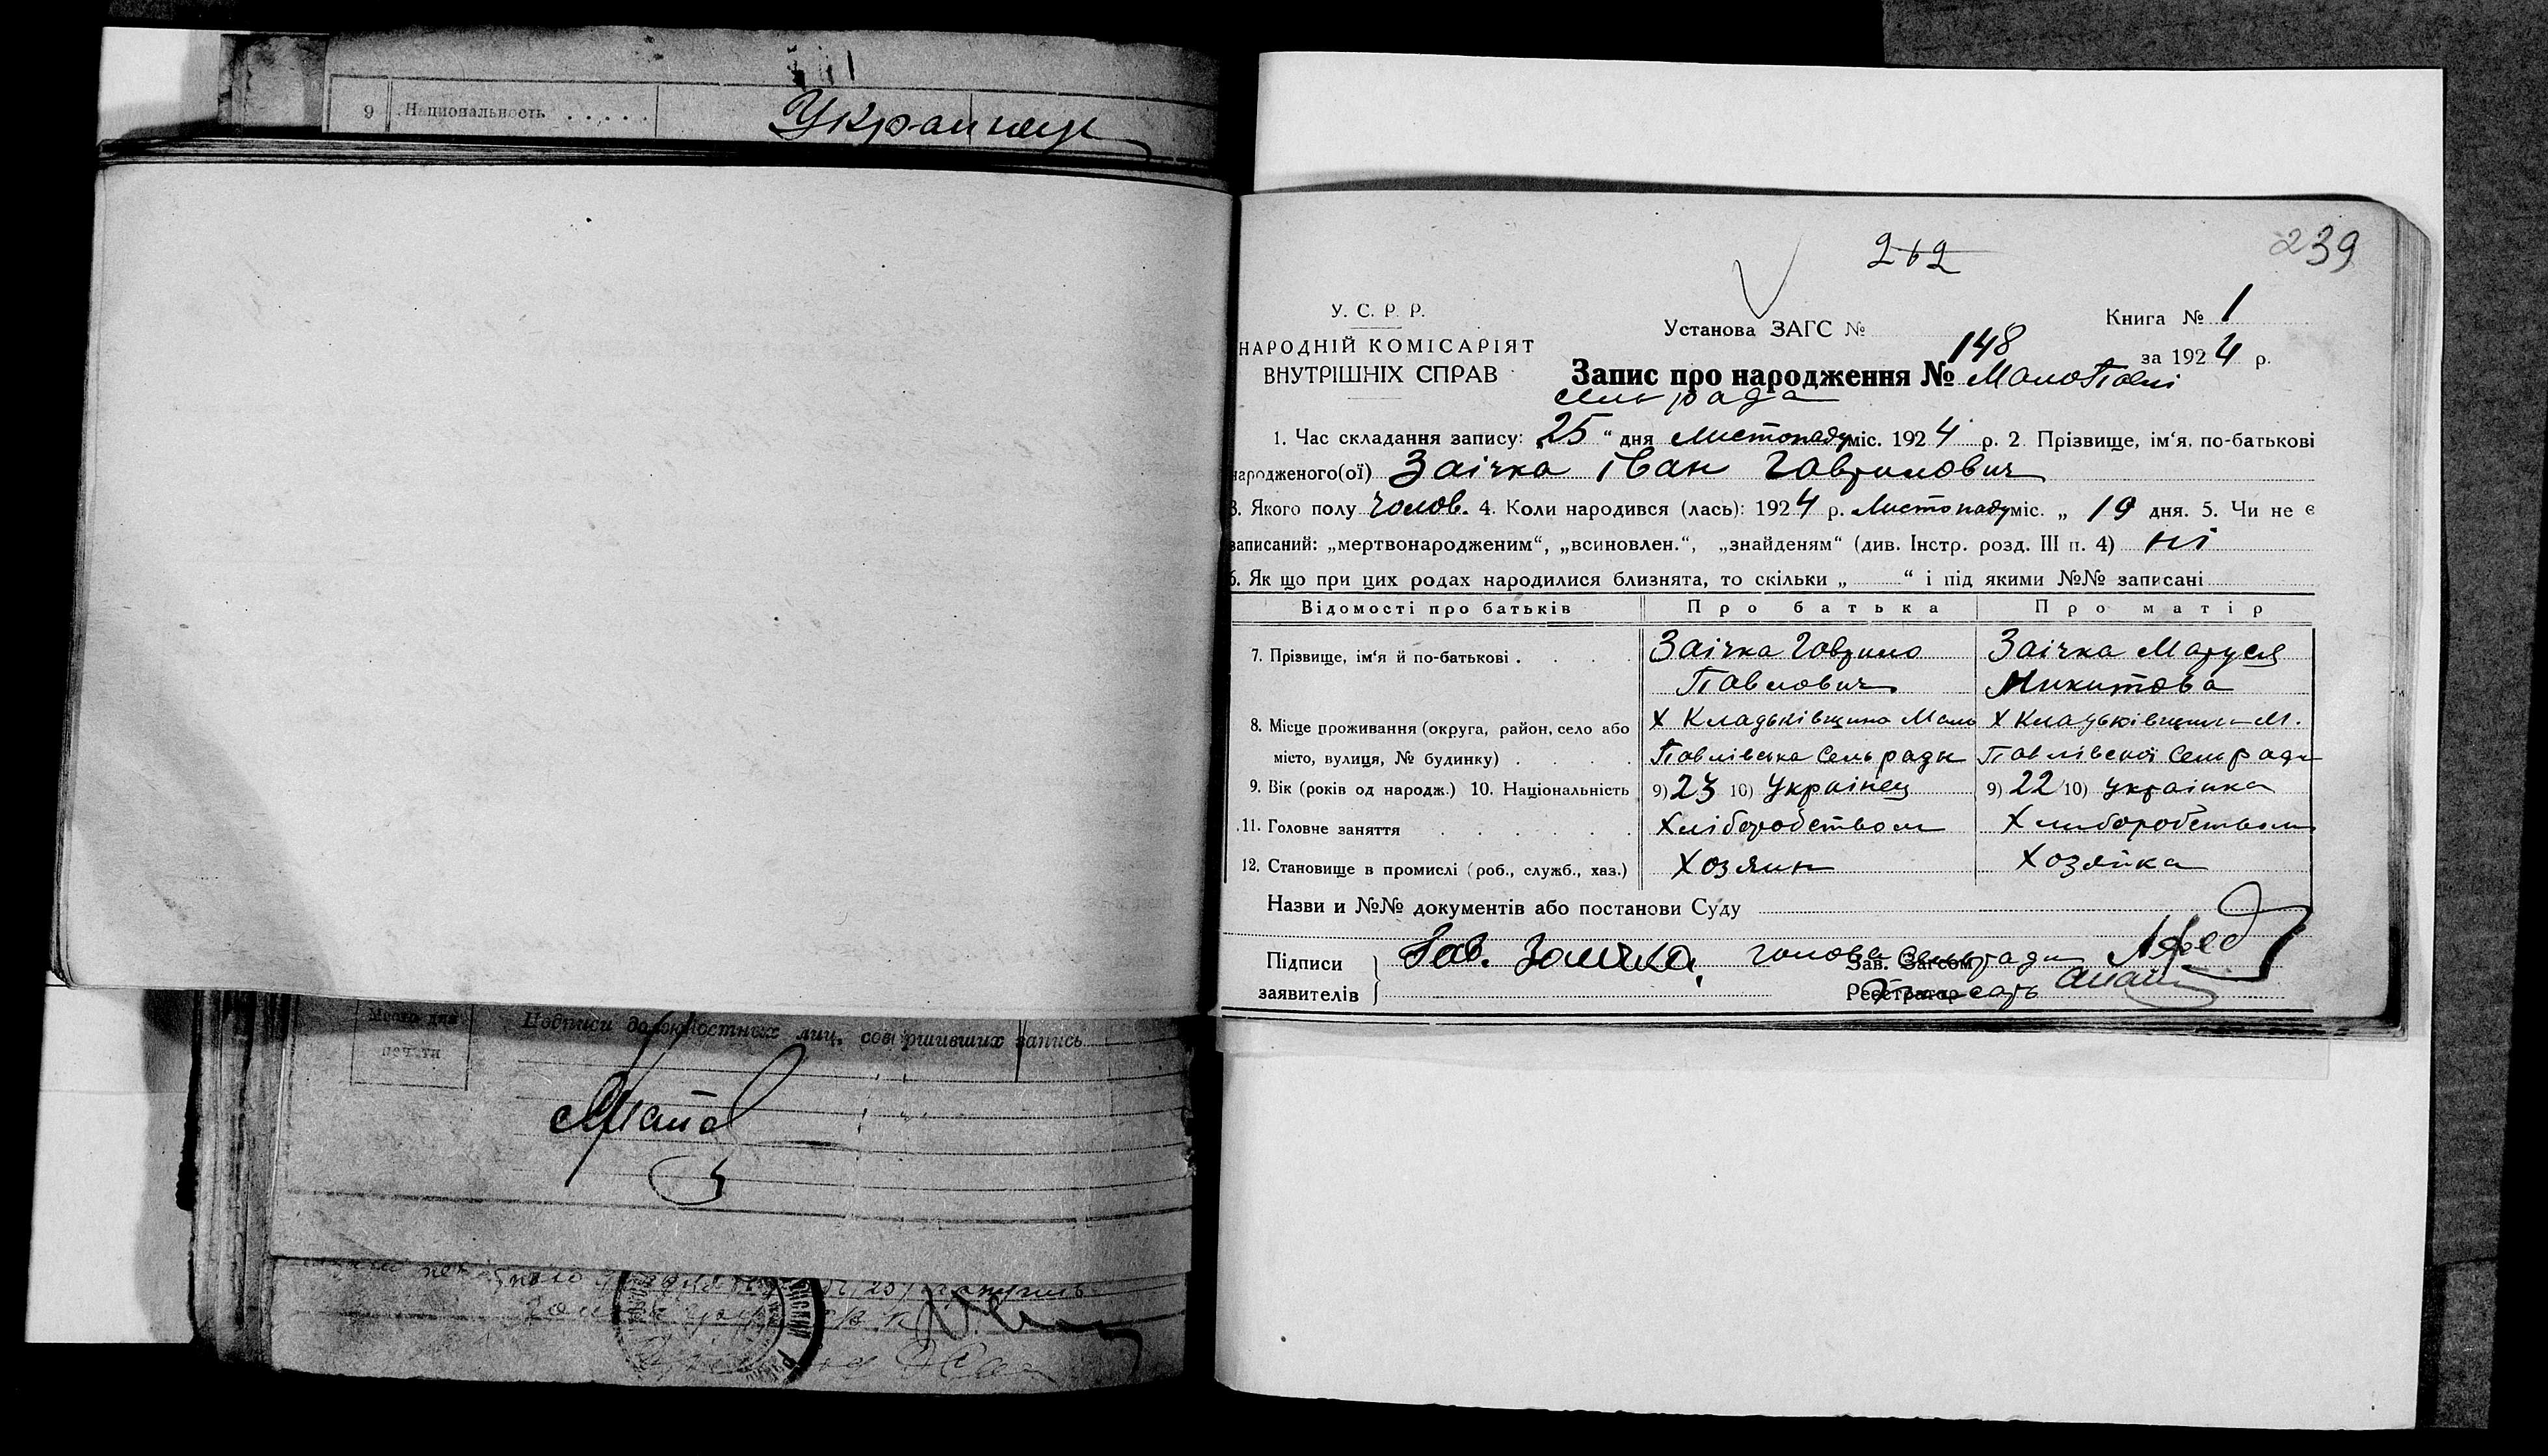 9 Национальность . . . . . Украинец
262
239
У. С. Р. Р.
НАРОДНІЙ КОМІСАРІЯТ
ВНУТРІШНІХ СПРАВ
Установа ЗАГС №
Книга № 1
за 1924 р.
Запис про народження № 148
сельрада
1. Час складання запису: „25“ дня Листопаду міс. 1924 р. 2. Прізвище, ім‘я, по-батькові
народженого(ої) Заічка Іван Гаврилович
3. Якого полу чолов. 4. Коли народився (лась): 1924 р. Листопаду міс. „ 19 дня. 5. Чи не є
записаний: „мертвонародженим“, „всиновлен.“, „знайденям“ (див. Інстр. розд. III п. 4) ні
6. Як що при цих родах народилися близнята, то скільки „ “ і під якими №№ записані
Відомості про батьків Про батька Про матір
7. Прізвище, ім‘я й по-батькові . . . . Заічка Гаврило Заічка Маруся
Павлович Микитова
8. Місце проживання (округа, район, село або Х Кладьківщина Мало Х Кладьківщина М.
місто, вулиця, № будинку) . . . . Павлівська Сельради Павлівскоі Сельради
9. Вік (років од народж.) 10. Національність 9) 23 10) Украінец 9) 22 10) украінка
11. Головне заняття . . . . . . Хліборобством Хлиборобством
12. Становище в промислі (роб., служб., хаз.) Хозяин Хозяйка
Назви и №№ документів або постанови Суду
Підписи
заявителів
Гав. Заичка,
Голова Сельради
Зав. Загсом
Реєстратор
Место для
печати
Подписи должностных лиц, совершивших запись